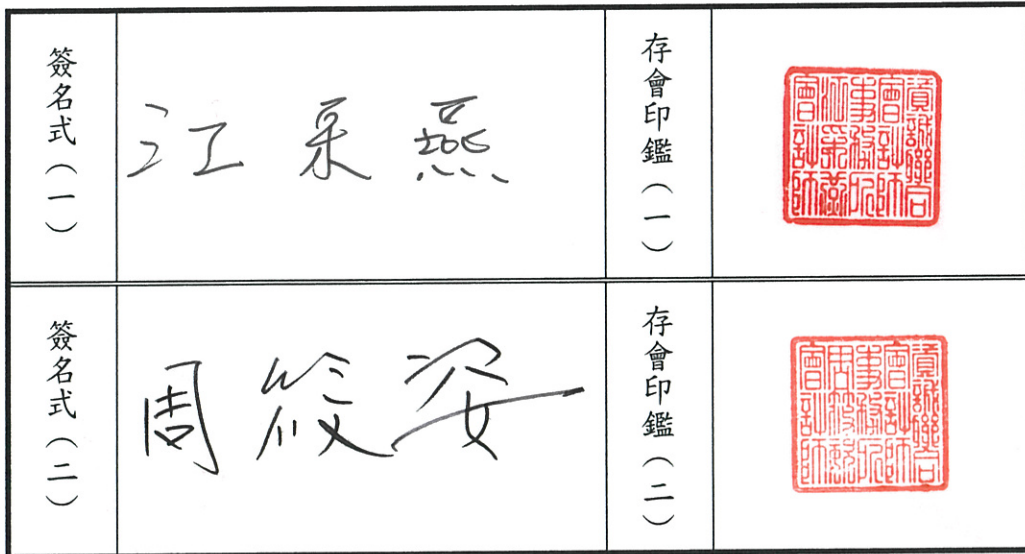 簽名式(一)
江采燕
存會印鑑(一)
資誠聯合
會計師
事務所
江采燕
會計師
簽名式(二)
周筱姿
存會印鑑(二)
資誠聯合
會計師
事務所
周筱姿
會計師